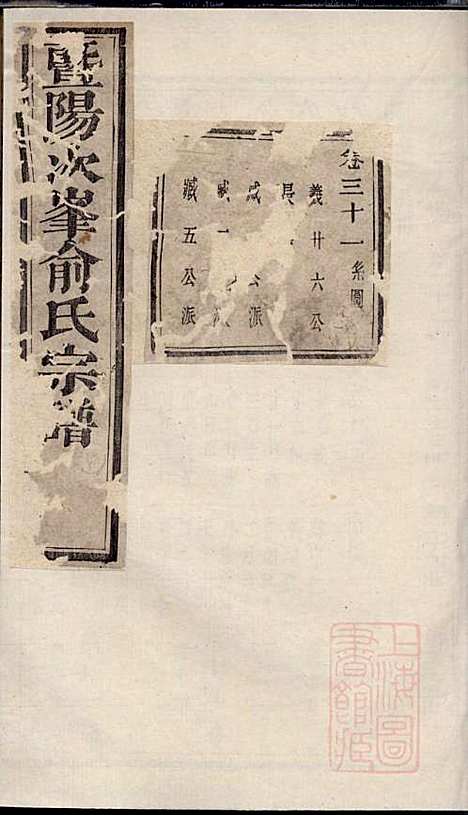 暨陽次峯俞氏宗譜
卷三十一系圖
義廿六公
咸 公派
臧一 派
臧五公派
上海圖書館藏